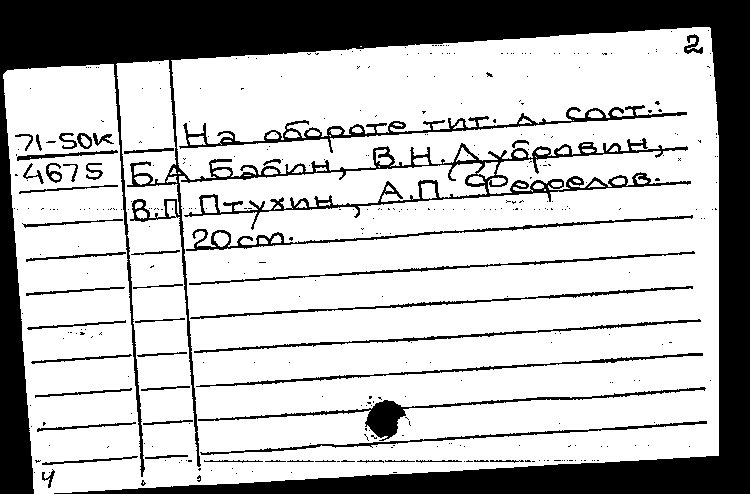 2
71-50к На обороте тит. л. сост.:
4675 Б.А. Бабин, В.Н. Дубровин,
В.П. Птухин, А.П.
20 cm.
4